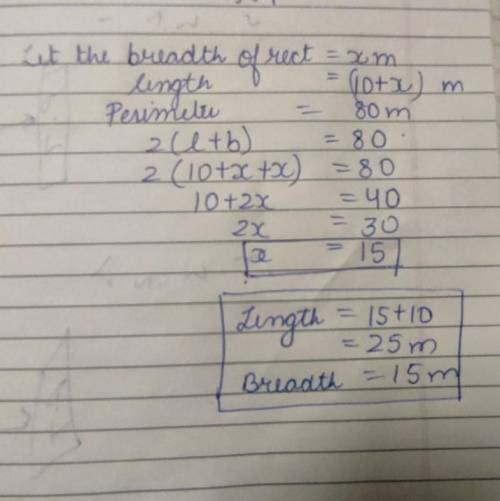 Let the breadth of rect = x m
length = (10+x) m
Perimeter = 80m
2(l+b) = 80
2(10+x+x) = 80
10+2x = 40
2x = 30
x = 15
Length = 15+10
= 25m
Breadth = 15m